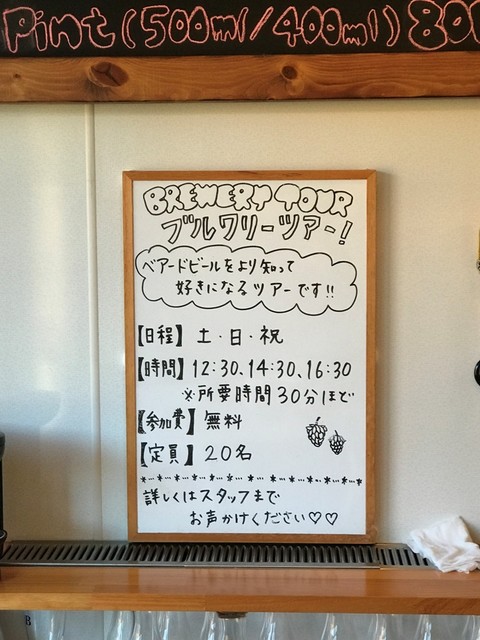 Pint (500ml/400ml) 80
BREWERY TOUR
ブルワリーツアー!
ベアードビールをより知って
好きになるツアーです!!
【日程】 土・日・祝
【時間】 12:30、14:30、16:30
※所要時間30分ほど
【参加費】 無料
【定員】 20名
詳しくはスタッフまで
お声かけください♡♡